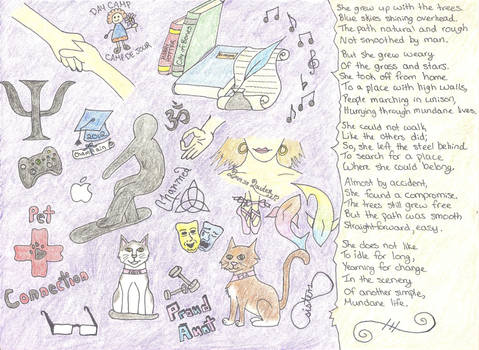 DAY CAMP
CAMP DE JOUR
2012
Champlain
Married
Pet
Connection
Proud
Aunt
She grew up with the trees.
Blue skies shining overhead.
The path natural and rough
Not smoothed by man.
But she grew weary
Of the grass and stars.
She took off from home
To a place with high walls,
People marching in unison,
Hurrying through mundane lives.
She could not walk
Like the others did;
So, she left the steel behind
To search for a place
Where she could belong.
Almost by accident,
She found a compromise.
The trees still grew free
But the path was smooth
Straight-forward, easy.
She does not like
To idle for long,
Yearning for change
In the scenery
Of another simple,
Mundane life.